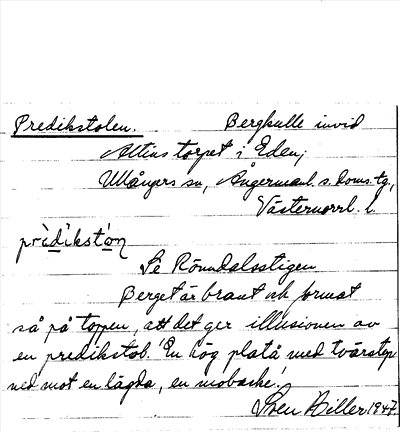 Predikstolen. Bergkulle invid
Altins torpet i Eden,
Ullångers sn, Ångermanl. s. doms. tg,
Västernorrl. l.
prìdìkstón
Se Rönndalsstigen
Berget är brant och format
så på toppen, att det ger illusionen av
en predikstol. En hög platå med tvärstep
ned mot en lägda, en mobacke.
Sven Hiller 1947.